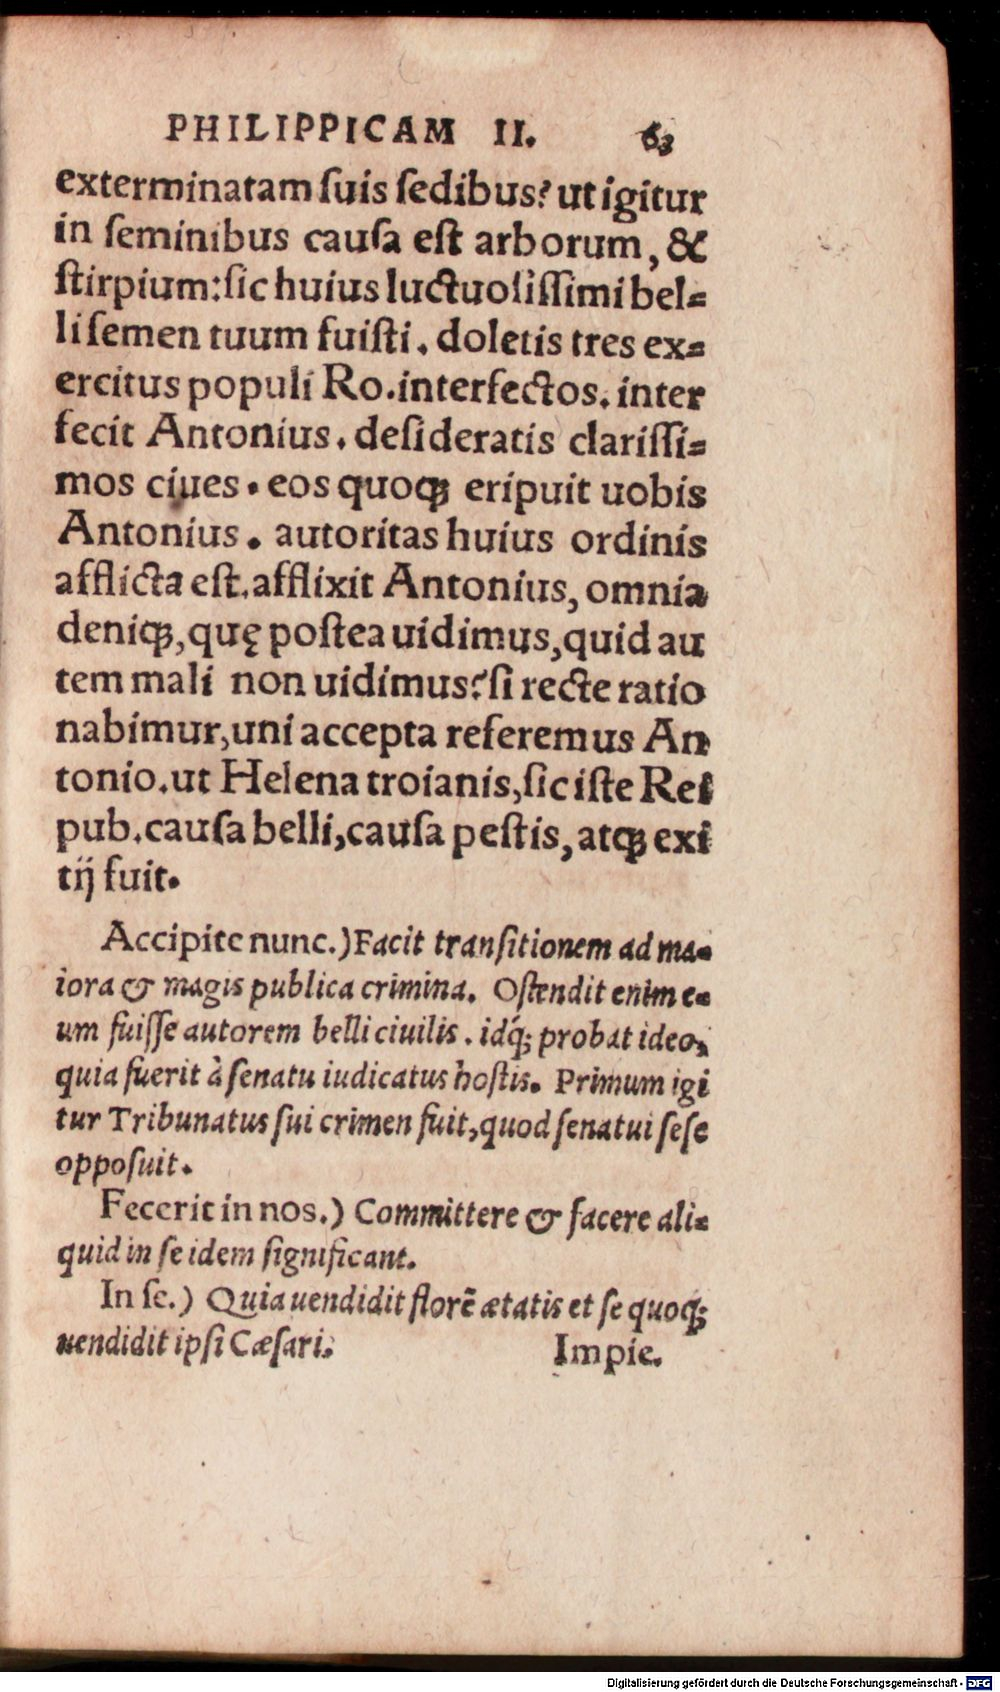 PHILIPPICAM II. 63
exterminatam ſuis ſedibus? ut igitur
in ſeminibus cauſa eſt arborum, &
ſtirpium: ſic huius luctuoſiſſimi bel⸗
li ſemen tuum fuiſti. doletis tres ex⸗
ercitus populi Ro. interfectos. inter
fecit Antonius. deſideratis clariſſi⸗
mos ciues. eos quoqꝫ eripuit uobis
Antonius. autoritas huius ordinis
afflicta eſt. afflixit Antonius, omnia
deniqꝫ, quę poſtea uidimus, quid au
tem mali non uidimus? ſi recte ratio
nabimur, uni accepta referemus An
tonio. ut Helena troianis, ſic iſte Rei
pub. cauſa belli, cauſa peſtis, atqꝫ exi
tij fuit.
Accipite nunc.) Facit tranſitionem ad ma⸗
iora & magis publica crimina. Oſtendit enim e⸗
um fuiſſe autorem belli ciuilis. idq́ꝫ probat ideo,
quia fuerit à ſenatu iudicatus hoſtis. Primum igi
tur Tribunatus ſui crimen fuit, quod ſenatui ſeſe
oppoſuit.
Fecerit in nos.) Committere & facere ali⸗
quid in ſe idem ſignificant.
In ſe.) Quia uendidit florē ætatis et ſe quoqꝫ
uendidit ipſi Cæſari. Impie.
Digitalisierung gefördert durch die Deutsche Forschungsgemeinschaft - DFG